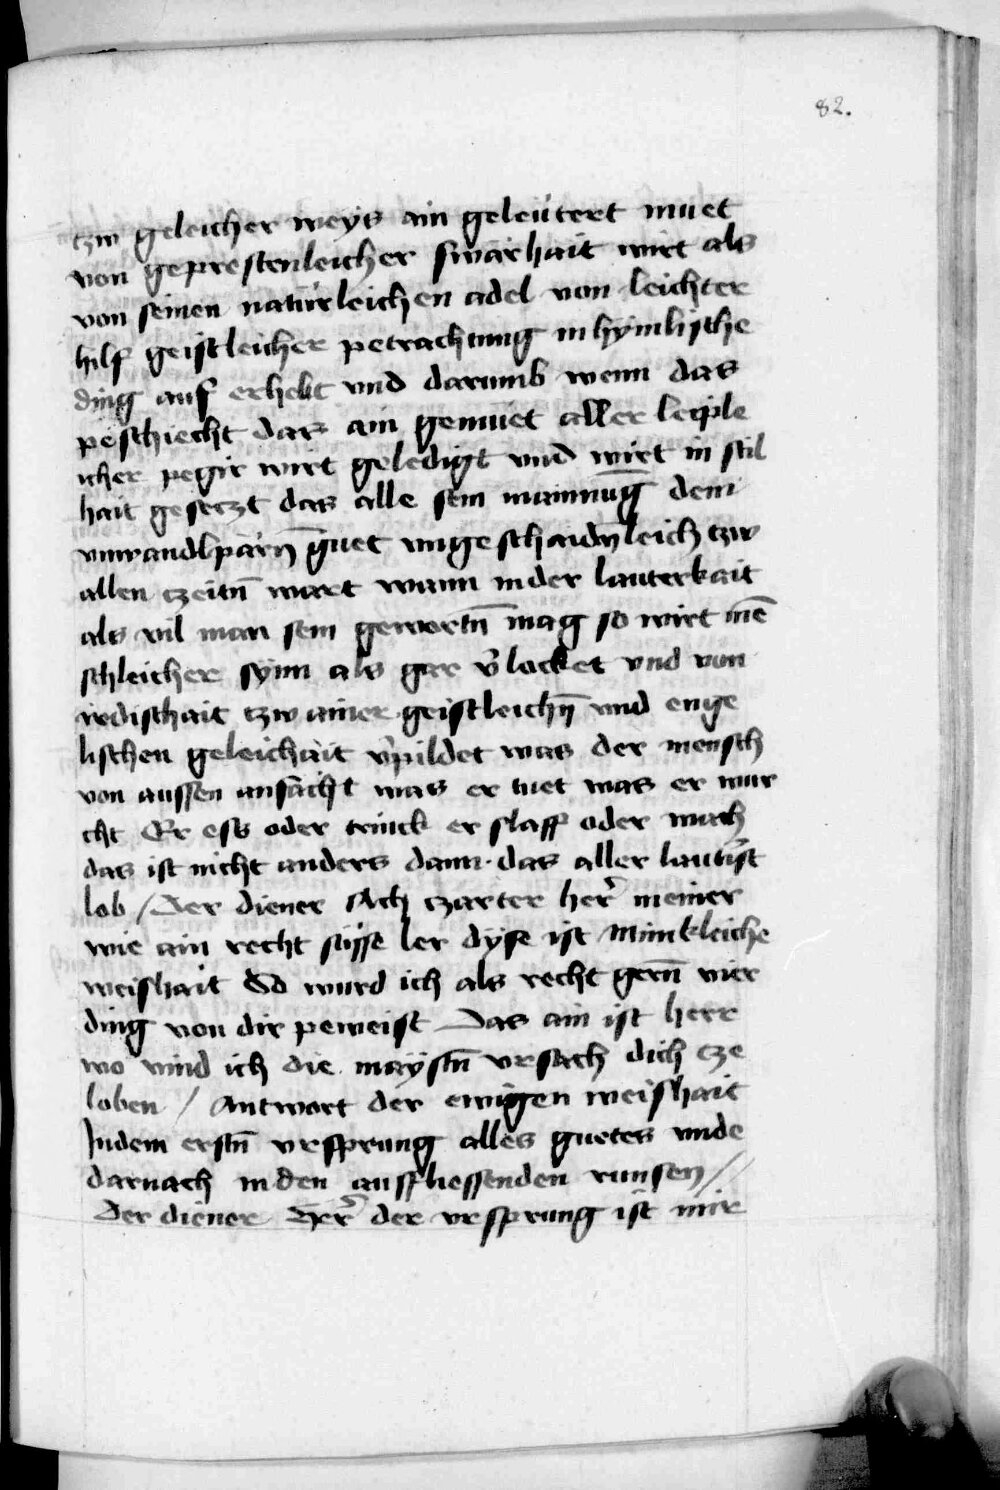 82.
tzw geleicher weys ain geleütert muet
von geprestenleicher swärhait wirt als
von seinen natürleichen adel von leichter
hilf geistleicher petrachtung in hymlische
ding auf erhebt vnd darumb wenn das
peschiecht das ain gemüet aller leiple
icher pegir wirt geledigt vnd wirt in stil
hait gesetzt das alle sein mainnūg dem
vnwandlpärn̄ guet vngeschaidn̄leich tzw
allen tzeitn̄ wart wann in der lauterkait
als vil man sein gewartn̄ mag so wirt mē
schleicher synn als gar v̓locket vnd von
irdischait tzw ainer geistleichn̄ vnd enge
lischen geleichait v̓pildet was der mensch
von aussen ansächt was er tuet was er wur
cht Er ess oder trinck er slaff oder wach
das ist nicht anders dann das aller lautr̓st
lob / Der diener Ach tzarter her̓ meiner
wie ain recht süsse ler dyse ist Minnkleiche
weishait So wurd ich als recht gern̄ vier
ding von dir peweist Das ain ist herr
wo vind ich die maystn̄ vrsach dich tze
loben / Antwort der ewigen weishait
Indem erstn̄ vrsprung alles guetes vnde
darnach in den ausfliessenden runsen //
Der diener Her̓ der vrsprung ist mir